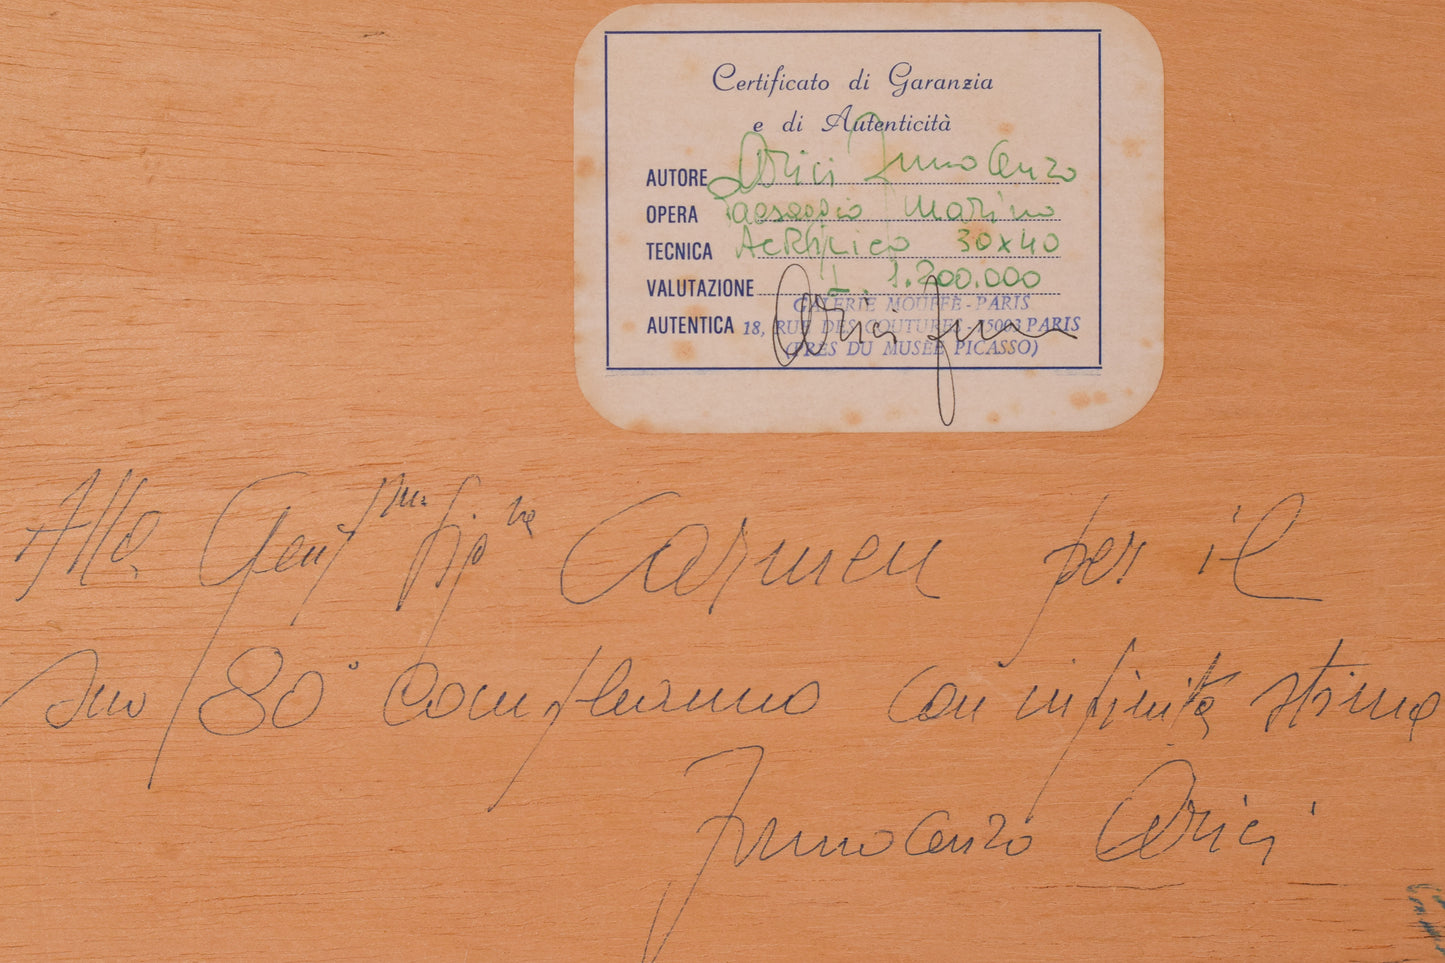 Certificato di Garanzia
e di Autenticità
AUTORE Orici Innocenzo
OPERA Paesaggio Marino
TECNICA Acrilico 30x40
VALUTAZIONE L. 1.200.000
GALERIE MOUFFE - PARIS
AUTENTICA 18, RUE DES COUTURES - 75003 PARIS
(PRES DU MUSÉE PICASSO)
Orici Inno
Alla Gent.ma Sig.ra Carmen per il
suo 80° compleanno con infinita stima
Innocenzo Orici